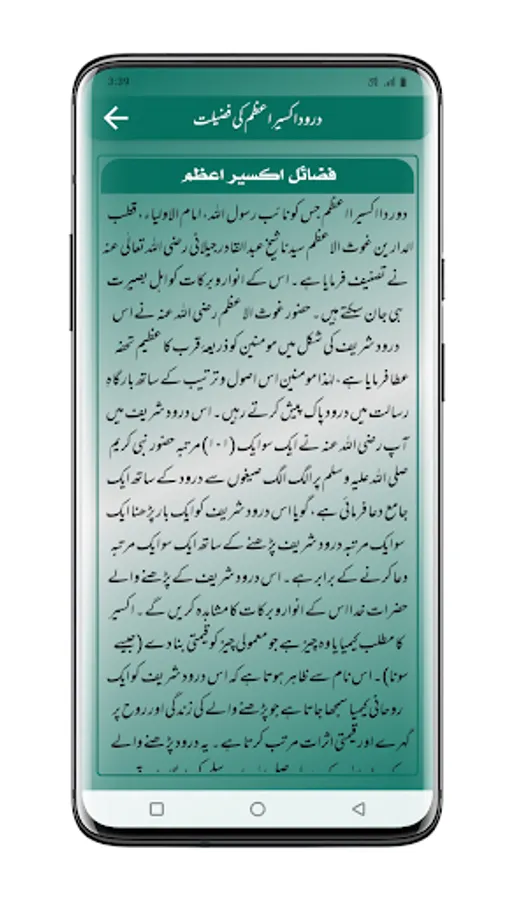 3:39
درود اکسیر اعظم کی فضیلت
فضائل اکسیر اعظم
دورد اکسیر اعظم جس کو نائب رسول اللہ، امام الاولیاء، قطب
الدارین غوث الاعظم سیدنا شیخ عبد القادر جیلانی رضی اللہ تعالی عنہ
نے تصنیف فرمایا ہے۔ اس کے انوار و برکات کو اہل بصیرت
ہی جان سکتے ہیں۔ حضور غوث الاعظم رضی اللہ عنہ نے اس
درود شریف کی شکل میں مومنین کو ذریعۂ قرب کا عظیم تحفہ
عطا فرمایا ہے، لہٰذا مومنین اس اصول و ترتیب کے ساتھ بارگاہِ
رسالت میں درود پاک پیش کرتے رہیں۔ اس درود شریف میں
آپ رضی اللہ عنہ نے ایک سو ایک (۱۰۱) مرتبہ حضور نبی کریم
صلی اللہ علیہ وسلم پر الگ الگ صیغوں سے درود کے ساتھ ایک
جامع دعا فرمائی ہے، گویا اس درود شریف کو ایک بار پڑھنا ایک
سو ایک مرتبہ درود شریف پڑھنے کے ساتھ ایک سو ایک مرتبہ
دعا کرنے کے برابر ہے۔ اس درود شریف کے پڑھنے والے
حضرات خدا اس کے انوار و برکات کا مشاہدہ کریں گے۔ اکسیر
کا مطلب کیمیا یا وہ چیز ہے جو معمولی چیز کو قیمتی بنا دے (جیسے
سونا)۔ اس نام سے ظاہر ہوتا ہے کہ اس درود شریف کو ایک
روحانی کیمیا سمجھا جاتا ہے جو پڑھنے والے کی زندگی اور روح پر
گہرے اور قیمتی اثرات مرتب کرتا ہے۔ یہ درود پڑھنے والے